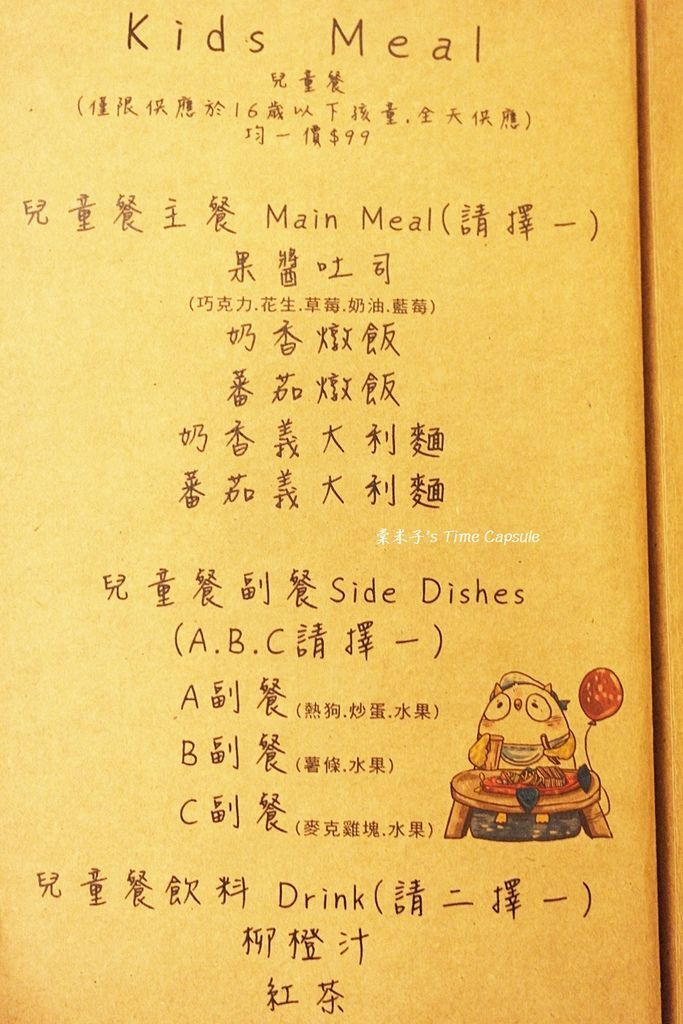 Kids Meal
兒童餐
(僅限供應於16歲以下孩童.全天供應)
均一價$99
兒童餐主餐 Main Meal(請擇一)
果醬吐司
(巧克力.花生.草莓.奶油.藍莓)
奶香燉飯
蕃茄燉飯
奶香義大利麵
蕃茄義大利麵
栗米子's Time Capsule
兒童餐副餐Side Dishes
(A.B.C請擇一)
A副餐(熱狗.炒蛋.水果)
B副餐(薯條.水果)
C副餐(麥克雞塊.水果)
兒童餐飲料 Drink(請二擇一)
柳橙汁
紅茶